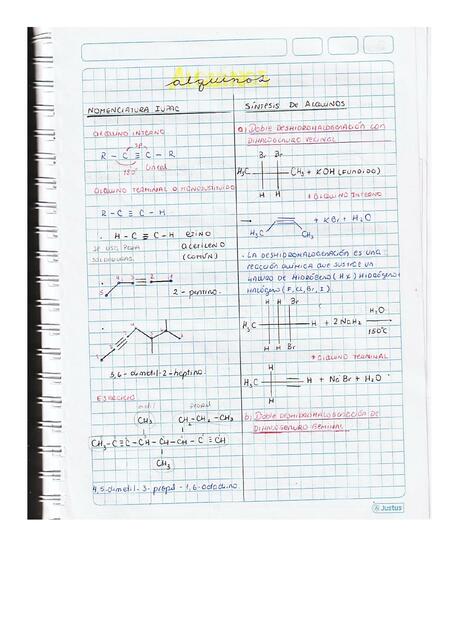 alquinos
NOMENCLATURA IUPAC
ALQUINO INTERNO
sp
R - C ≡ C - R
180° Lineal
ALQUINO TERMINAL O MONOSUSTITUIDO
R - C ≡ C - H
H - C ≡ C - H etino
SE USA PARA acetileno
(COMÚN)
5 4 3 2 1
2 - pentino
3,6 - dimetil - 2 - heptino
EJERCICIO
metil propil
CH₃ CH₂ - CH₂ - CH₃
CH₃ - C ≡ C - CH - CH - CH - C ≡ CH
CH₃
4,5-dimetil - 3 - propil - 1,6-octadiino
SÍNTESIS DE ALQUINOS
a) DOBLE DESHIDROHALOGENACIÓN CON
DIHALOGENURO VECINAL
Br Br
H₃C CH₃ + KOH (FUNDIDO)
H H
* ALQUINO INTERNO
→ + KBr + H₂O
H₃C CH₃
- LA DESHIDROHALOGENACIÓN ES UNA
REACCIÓN QUÍMICA QUE
HALURO DE HIDRÓGENO (HX) HIDRÓGENO
HALÓGENO (F, Cl, Br, I).
H H Br
H₃C H + 2 NaNH₂ H₂O
150°C
H H Br
* TERMINAL
H
H₃C H + NaBr + H₂O
H
b) DOBLE DESHIDROHALOGENACIÓN DE
DIHALOGENURO GEMINAL
Justus